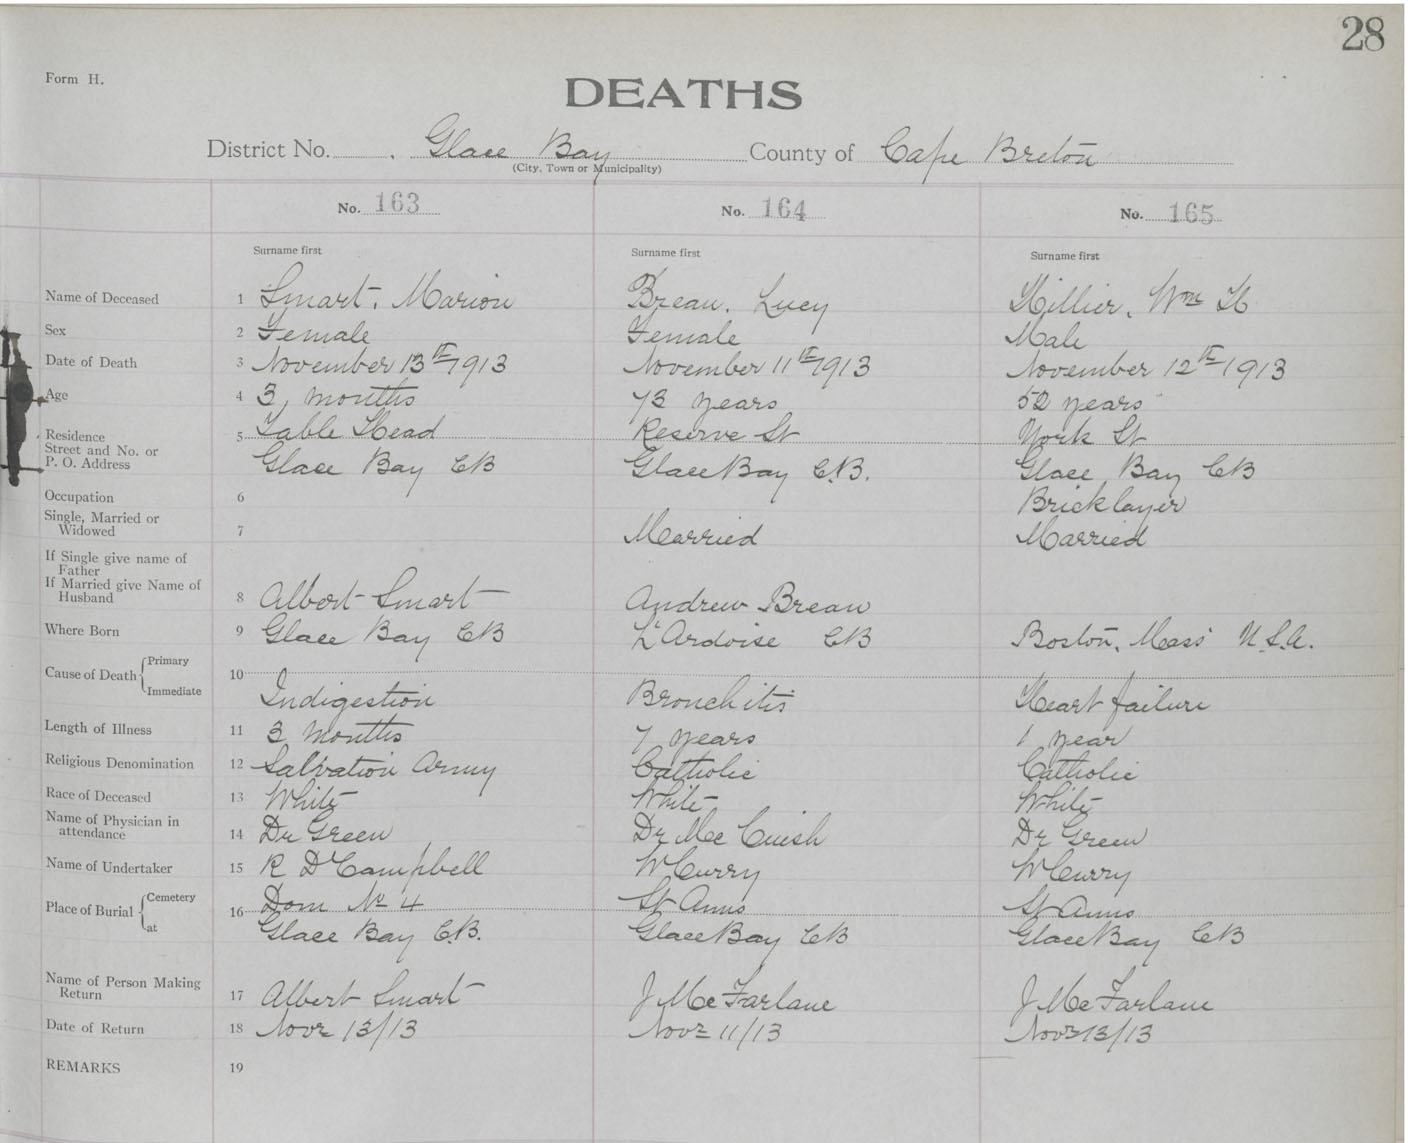 28
Form H.
DEATHS
District No. Glace Bay County of Cape Breton
(City, Town or Municipality)
No. 163 No. 164 No. 165
Surname first Surname first Surname first
Name of Deceased 1 Smart, Marion Breau, Lucy Hillier, Wm H
Sex 2 Female Female Male
Date of Death 3 November 13th 1913 November 11th 1913 November 12th 1913
Age 4 3 months 73 years 52 years
Residence 5 Table Head Reserve St York St
Street and No. or
P. O. Address Glace Bay CB Glace Bay C.B. Glace Bay CB
Occupation 6 Bricklayer
Single, Married or
Widowed 7 Married Married
If Single give name of
Father
If Married give Name of
Husband 8 Albert Smart Andrew Breau
Where Born 9 Glace Bay CB L'Ardoise CB Boston, Mass U.S.A.
Cause of Death Primary 10
Immediate Indigestion Bronchitis Heart failure
Length of Illness 11 3 months 7 years 1 year
Religious Denomination 12 Salvation Army Catholic Catholic
Race of Deceased 13 White White White
Name of Physician in
attendance 14 Dr Green Dr McCuish Dr Green
Name of Undertaker 15 R D Campbell W Curry W Curry
Place of Burial Cemetery 16 Dom No 4 St Anns St Anns
at Glace Bay C.B. Glace Bay CB Glace Bay CB
Name of Person Making
Return 17 Albert Smart J McFarlane J McFarlane
Date of Return 18 Novr 13/13 Novr 11/13 Novr 13/13
REMARKS 19